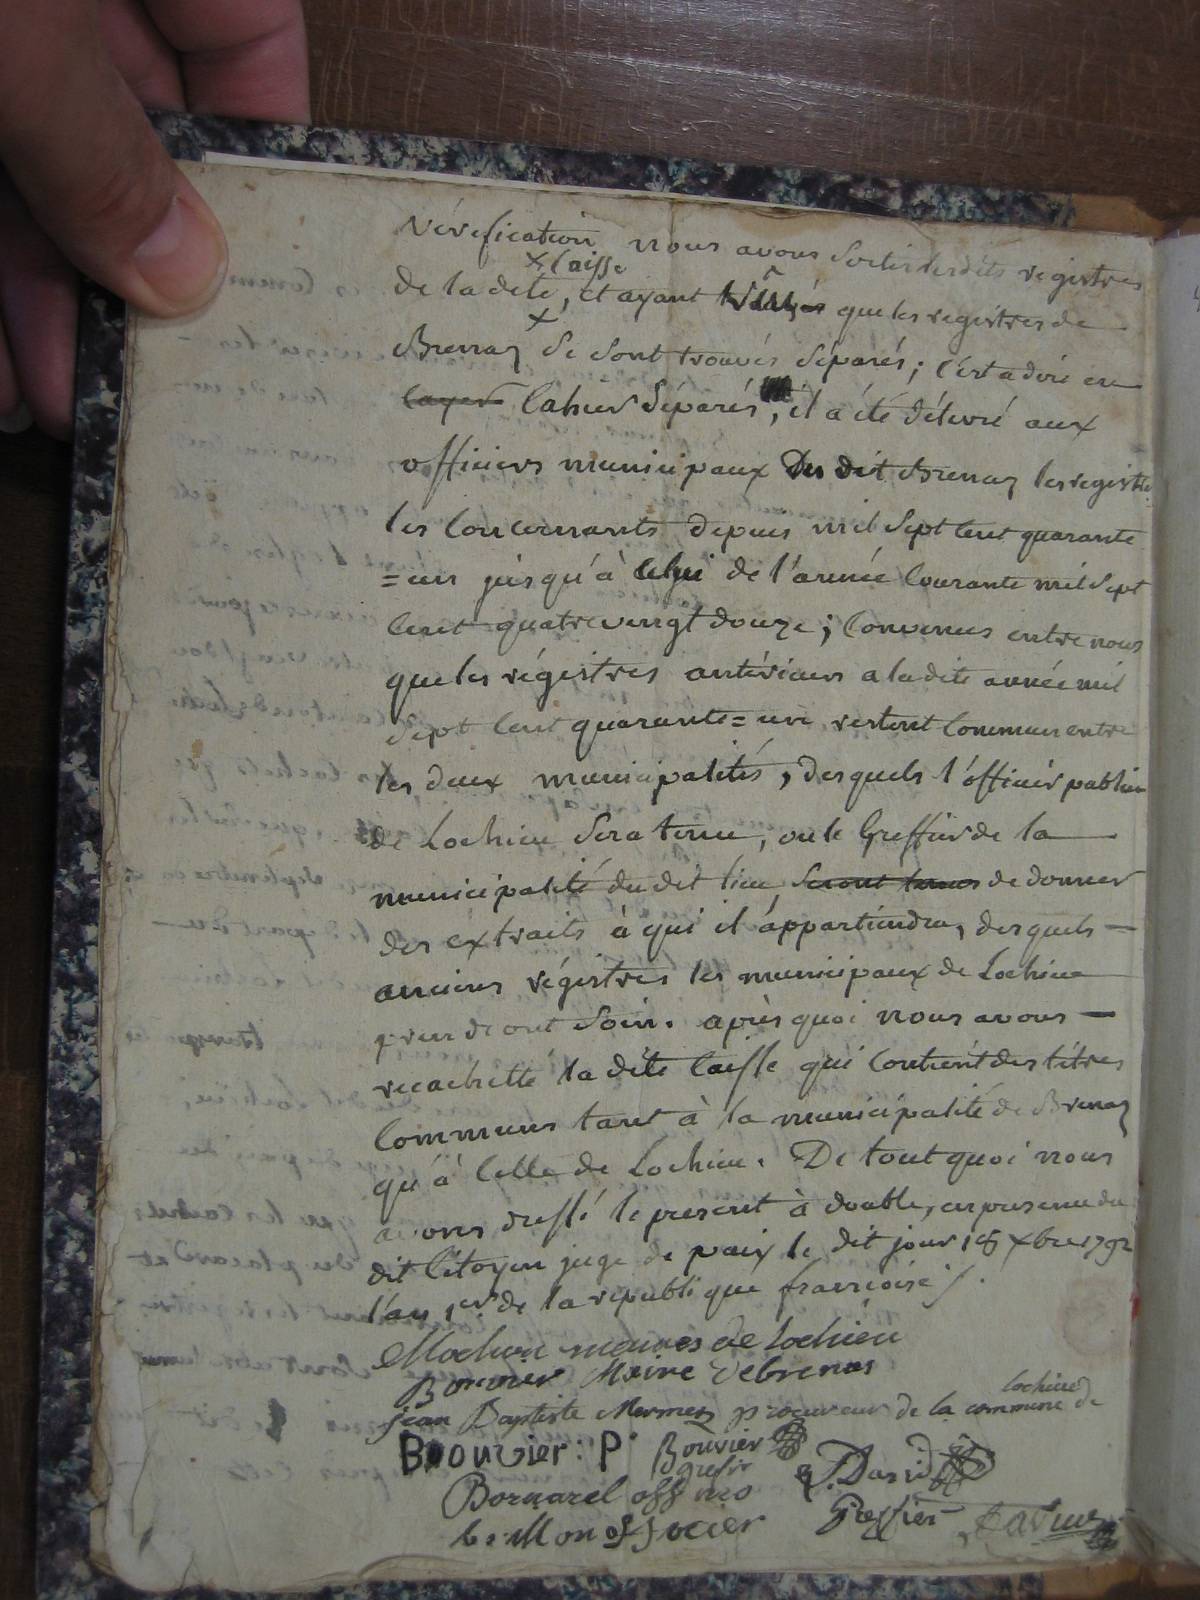 Vérification nous avons sortis lesdits registres
de la dete, × Caisse et ayant que les registres de
× Brenaz se sont trouvés séparés ; c'est a dire en
cayer Cahier séparés, il a été délivré aux
officiers municipaux du dit Brenaz les registres
les Concernants depuis mil sept cent quarante
=un jusqu'à celui de l'année Courante mil sept
Cent quatrevingt douze ; Convenus entre nous
que les régistres antérieurs a la dite année mil
sept Cent quarante=un restent Commun entre
les deux municipalités, desquels l'officier public
de Lochieu sera tenu, ou le Greffier de la
municipalité du dit lieu seront tenus de donner
des extraits à qui il appartiendra, desquels —
anciens régistres les municipaux de Lochieu
prendront soin. après quoi nous avons —
recachetté la dite Caisse qui Contient des titres
Communs tant à la municipalité de Brenaz
qu'à Celle de Lochieu. De tout quoi nous
avons dressé le present à double, en presence du
dit Citoyen juge de paix le dit jour 15 Xbre 1792
l'an 1er de la republique françoise /.
Mochon maires de lochieu
Bouvier Maire debrenas
jean Baptiste Mermez procureur de la commune de lochieu
Boouvier : P. Bouvier
grefir David
Bornarel off mo Greffier